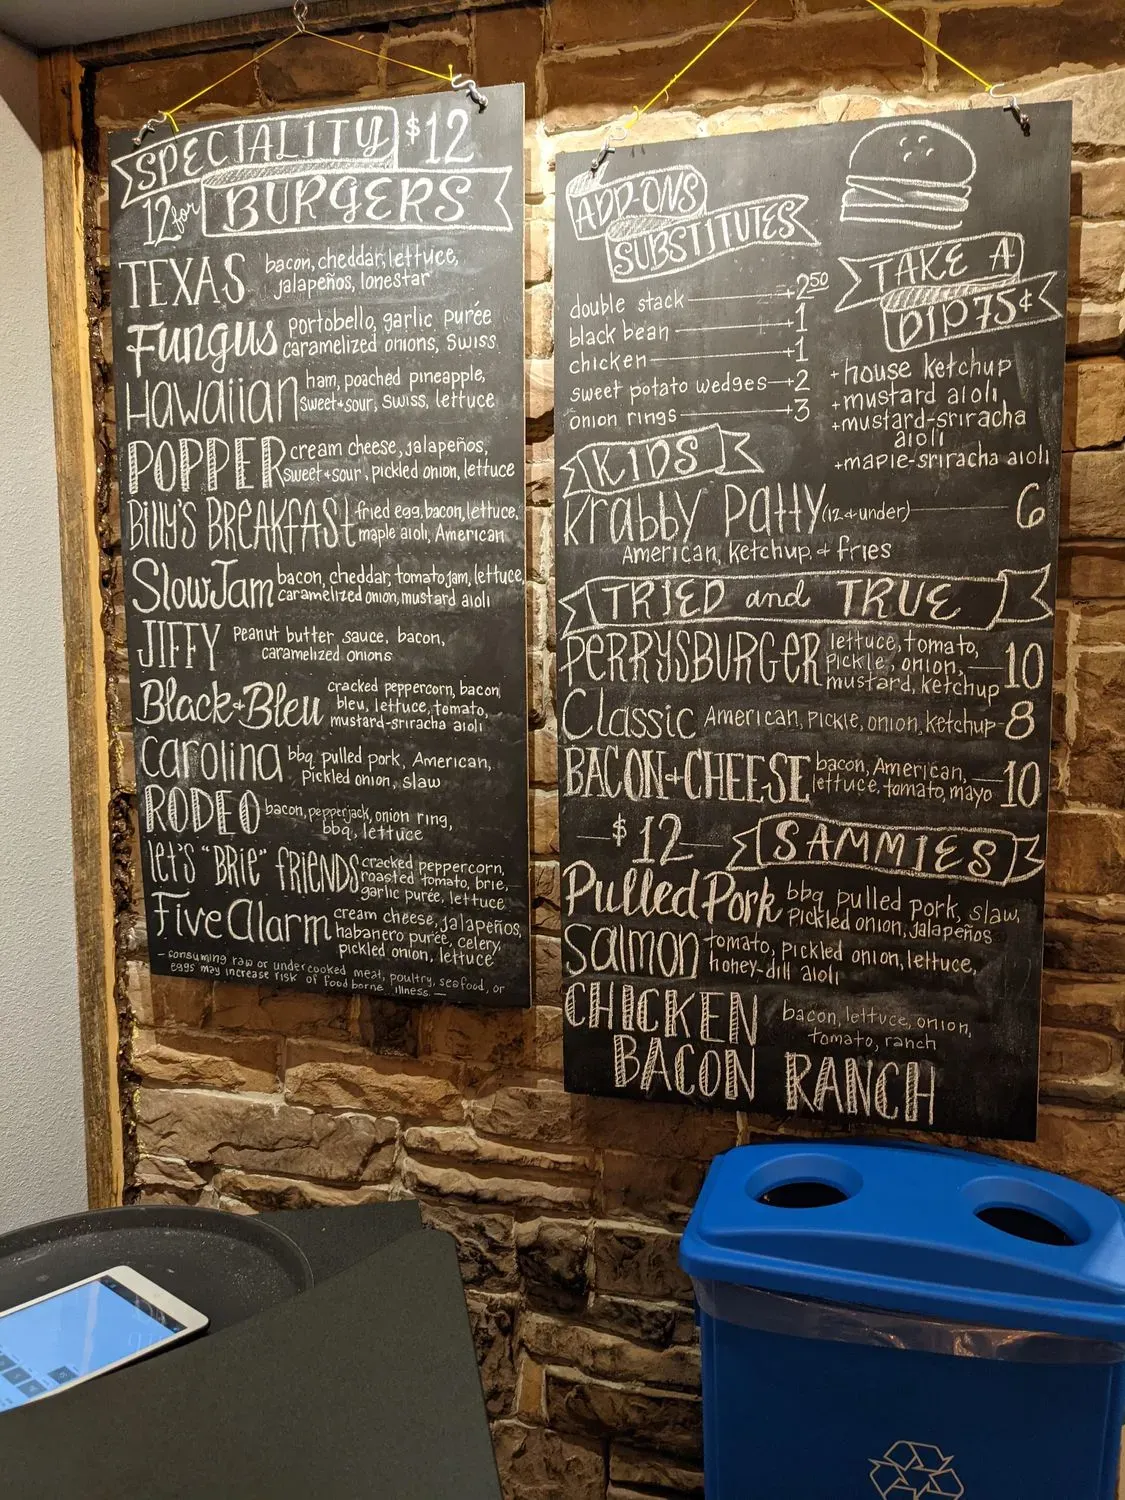 SPECIALITY $12
12 for BURGERS
TEXAS bacon, cheddar, lettuce,
jalapeños, lonestar
Fungus portobello, garlic purée
caramelized onions, Swiss
Hawaiian ham, poached pineapple,
sweet+sour, Swiss, lettuce
POPPER cream cheese, jalapeños,
sweet+sour, pickled onion, lettuce
BILLY'S BREAKFAST fried egg, bacon, lettuce,
maple aioli, American
SlowJam bacon, cheddar, tomato jam, lettuce,
caramelized onion, mustard aioli
JIFFY Peanut butter sauce, bacon,
caramelized onions
Black+Bleu cracked peppercorn, bacon,
bleu, lettuce, tomato,
mustard-sriracha aioli
Carolina bbq pulled pork, American,
pickled onion, slaw
RODEO bacon, pepperjack, onion ring,
bbq, lettuce
let's "BRIE" FRIENDS cracked peppercorn,
roasted tomato, brie,
garlic purée, lettuce
Five Alarm cream cheese, jalapeños,
habanero purée, celery,
pickled onion, lettuce
- consuming raw or undercooked meat, poultry, seafood, or
eggs may increase risk of foodborne illness. -
ADD-ONS
SUBSTITUTES
double stack +2.50
black bean +1
chicken +1
sweet potato wedges +2
onion rings +3
TAKE A
DIP 75¢
+house ketchup
+mustard aioli
+mustard-sriracha
aioli
+maple-sriracha aioli
KIDS
Krabby Patty (12 + under) 6
American, Ketchup, + fries
TRIED and TRUE
PERRYSBURGER lettuce, tomato,
pickle, onion, 10
mustard, ketchup
Classic American, pickle, onion, ketchup 8
BACON+CHEESE bacon, American,
lettuce, tomato, mayo 10
$12 SAMMIES
Pulled Pork bbq pulled pork, slaw,
pickled onion, jalapeños
Salmon tomato, pickled onion, lettuce,
honey-dill aioli
CHICKEN bacon, lettuce, onion,
tomato, ranch
BACON RANCH